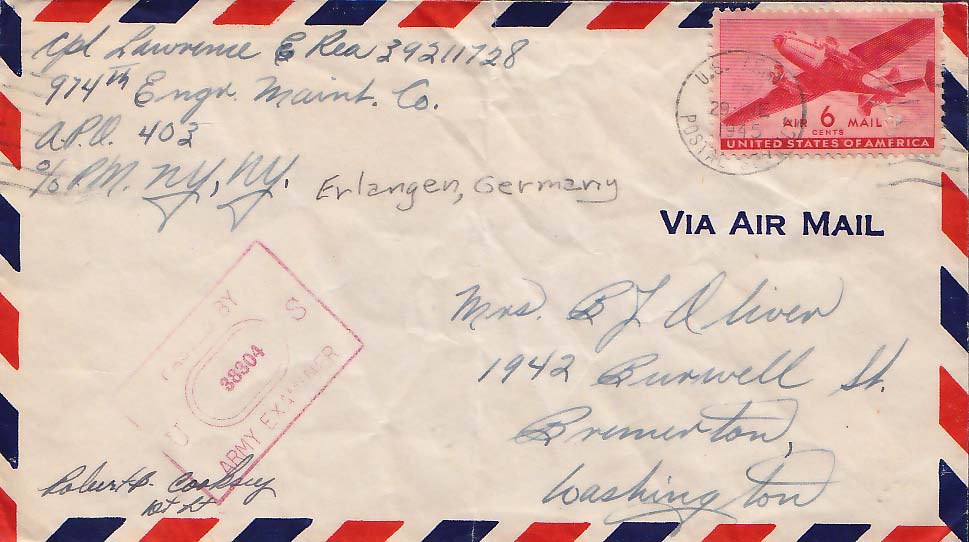 Cpl Lawrence E Rea 39211728
974th Engr. Maint. Co.
A.P.O. 403
c/o P.M. NY, NY.
Erlangen, Germany
U.S.
29
1945
POSTAL
AIR 6 MAIL
CENTS
UNITED STATES OF AMERICA
VIA AIR MAIL
Mrs. B L Oliver
1942 Burwell St.
Bremerton,
Washington
BY
U S
38304
ARMY EXAMINER
Robert B. Cooksey
1st Lt